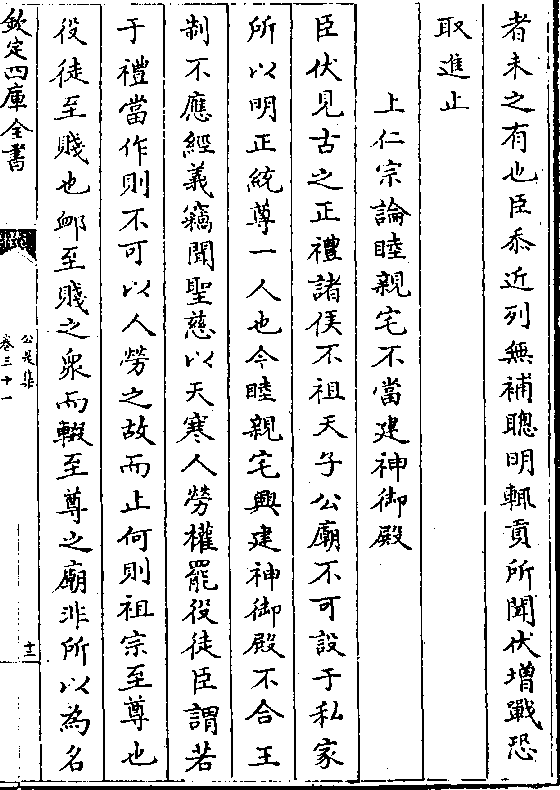 者未之有也臣忝近列無補聰明輒貢所聞伏增戰恐
取進止
上仁宗論睦親宅不當建神御殿
臣伏見古之正禮諸侯不祖天子公廟不可設于私家
所以明正統尊一人也今睦親宅興建神御殿不合王
制不應經義竊聞聖慈以天寒人勞權罷役徒臣謂若
于禮當作則不可以人勞之故而止何則祖宗至尊也
役徒至賤也卹至賤之衆而輟至尊之廟非所以為名
欽定四庫全書
公是集
卷三十一
十二